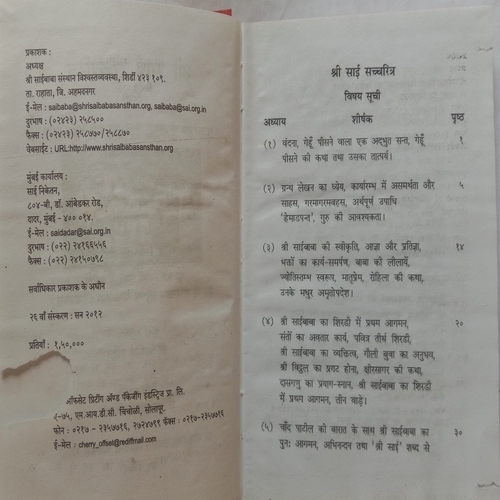 प्रकाशक :
अध्यक्ष
श्री साईबाबा संस्थान विश्वस्तव्यवस्था, शिर्डी ४२३ १०९.
ता. राहाता, जि. अहमदनगर
ई-मेल : saibaba@shrisaibabasansthan.org, saibaba@sai.org.in
दुरभाष : (०२४२३) २५८५००
फैक्स : (०२४२३) २५८७७०/२५८८७०
वेबसाईट : URL:http://www.shrisaibabasansthan.org
मुंबई कार्यालय :
साई निकेतन,
८०४-बी, डॉ. आंबेडकर रोड,
दादर, मुंबई - ४०० ०१४.
ई-मेल : saidadar@sai.org.in
दुरभाष : (०२२) २४१६६५५६
फैक्स : (०२२) २४१५०७९८
सर्वाधिकार प्रकाशक के अधीन
२६ वाँ संस्करण : सन २०१२
प्रतियाँ : १,५०,०००
ऑफसेट प्रिंटींग अ‍ॅण्ड पॅकेजींग इंडस्ट्रिज प्रा. लि.
-७५, एम.आय.डी.सी. चिंचोली, सोलापूर.
फोन : ०२१७ - २३५७७१६, २७२४७११ फॅक्स : ०२१७-२३५७७१६
ई-मेल : cherry_offset@rediffmail.com
श्री साई सच्चरित्र
विषय सूची
अध्याय शीर्षक पृष्ठ
(१) वंदना, गेहूँ पीसने वाला एक अद्भुत सन्त, गेहूँ १
पीसने की कथा तथा उसका तात्पर्य।
(२) ग्रन्थ लेखन का ध्येय, कार्यारम्भ में असमर्थता और ५
साहस, गरमागरमबहस, अर्थपूर्ण उपाधि
'हेमाडपन्त', गुरु की आवश्यकता।
(३) श्री साईबाबा की स्वीकृति, आज्ञा और प्रतिज्ञा, १४
भक्तों का कार्य-समर्पण, बाबा की लीलायें,
ज्योतिस्तम्भ स्वरूप, मातृप्रेम, रोहिला की कथा,
उनके मधुर अमृतोपदेश।
(४) श्री साईबाबा का शिरडी में प्रथम आगमन, २०
संतों का अवतार कार्य, पवित्र तीर्थ शिरडी,
श्री साईबाबा का व्यक्तित्व, गौली बुवा का अनुभव,
श्री विट्ठल का प्रगट होना, क्षीरसागर की कथा,
दासगणु का प्रयाग-स्नान, श्री साईबाबा का शिरडी
में प्रथम आगमन, तीन वाड़े।
(५) चाँद पाटील की बारात के साथ श्री साईबाबा का ३०
पुनः आगमन, अभिनंदन तथा 'श्री साई' शब्द से